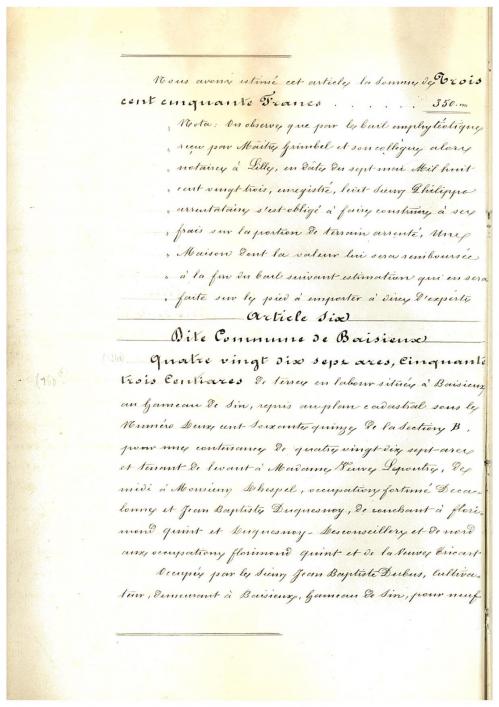 Nous avons estimé cet article la somme de Trois
cent cinquante Francs . . . . . . 350.m
" Nota: On observe que par le bail emphytéotique
" reçu par Maître Grimbel et son collègue alors
" notaires à Lille, en date du sept mai Mil huit
" cent vingt trois, enregistré, ledit Sieur Philippe
" arrentataire s'est obligé à faire construire à ses
" frais sur la portion de terrain arrenté, Une
" Maison dont la valeur lui sera remboursée
" à la fin du bail suivant estimation qui en sera
" faite sur le pied à emporter à dires d'experts
Article Six
Dite Commune de Baisieux
Quatre vingt dix sept ares, Cinquante
trois Centiares de terre en labour située à Baisieux
au hameau de Sin, repris au plan cadastral sous le
Numéro Deux cent Soixante quinze de la Section B.
pour une contenance de quatre vingt dix sept ares
et tenant de levant à Madame Veuve Lepoutre, de
midi à Monsieur Dhespel, occupation fortuné Deca-
lonne et Jean Baptiste Duquesnoy, de couchant à flori-
mond quint et Duquesnoy-Desconseillez et de nord
aux occupations florimond quint et de la Veuve Tricart
Occupée par le Sieur Jean Baptiste Dubus, Cultiva-
teur, demeurant à Baisieux, hameau de Sin, pour neuf